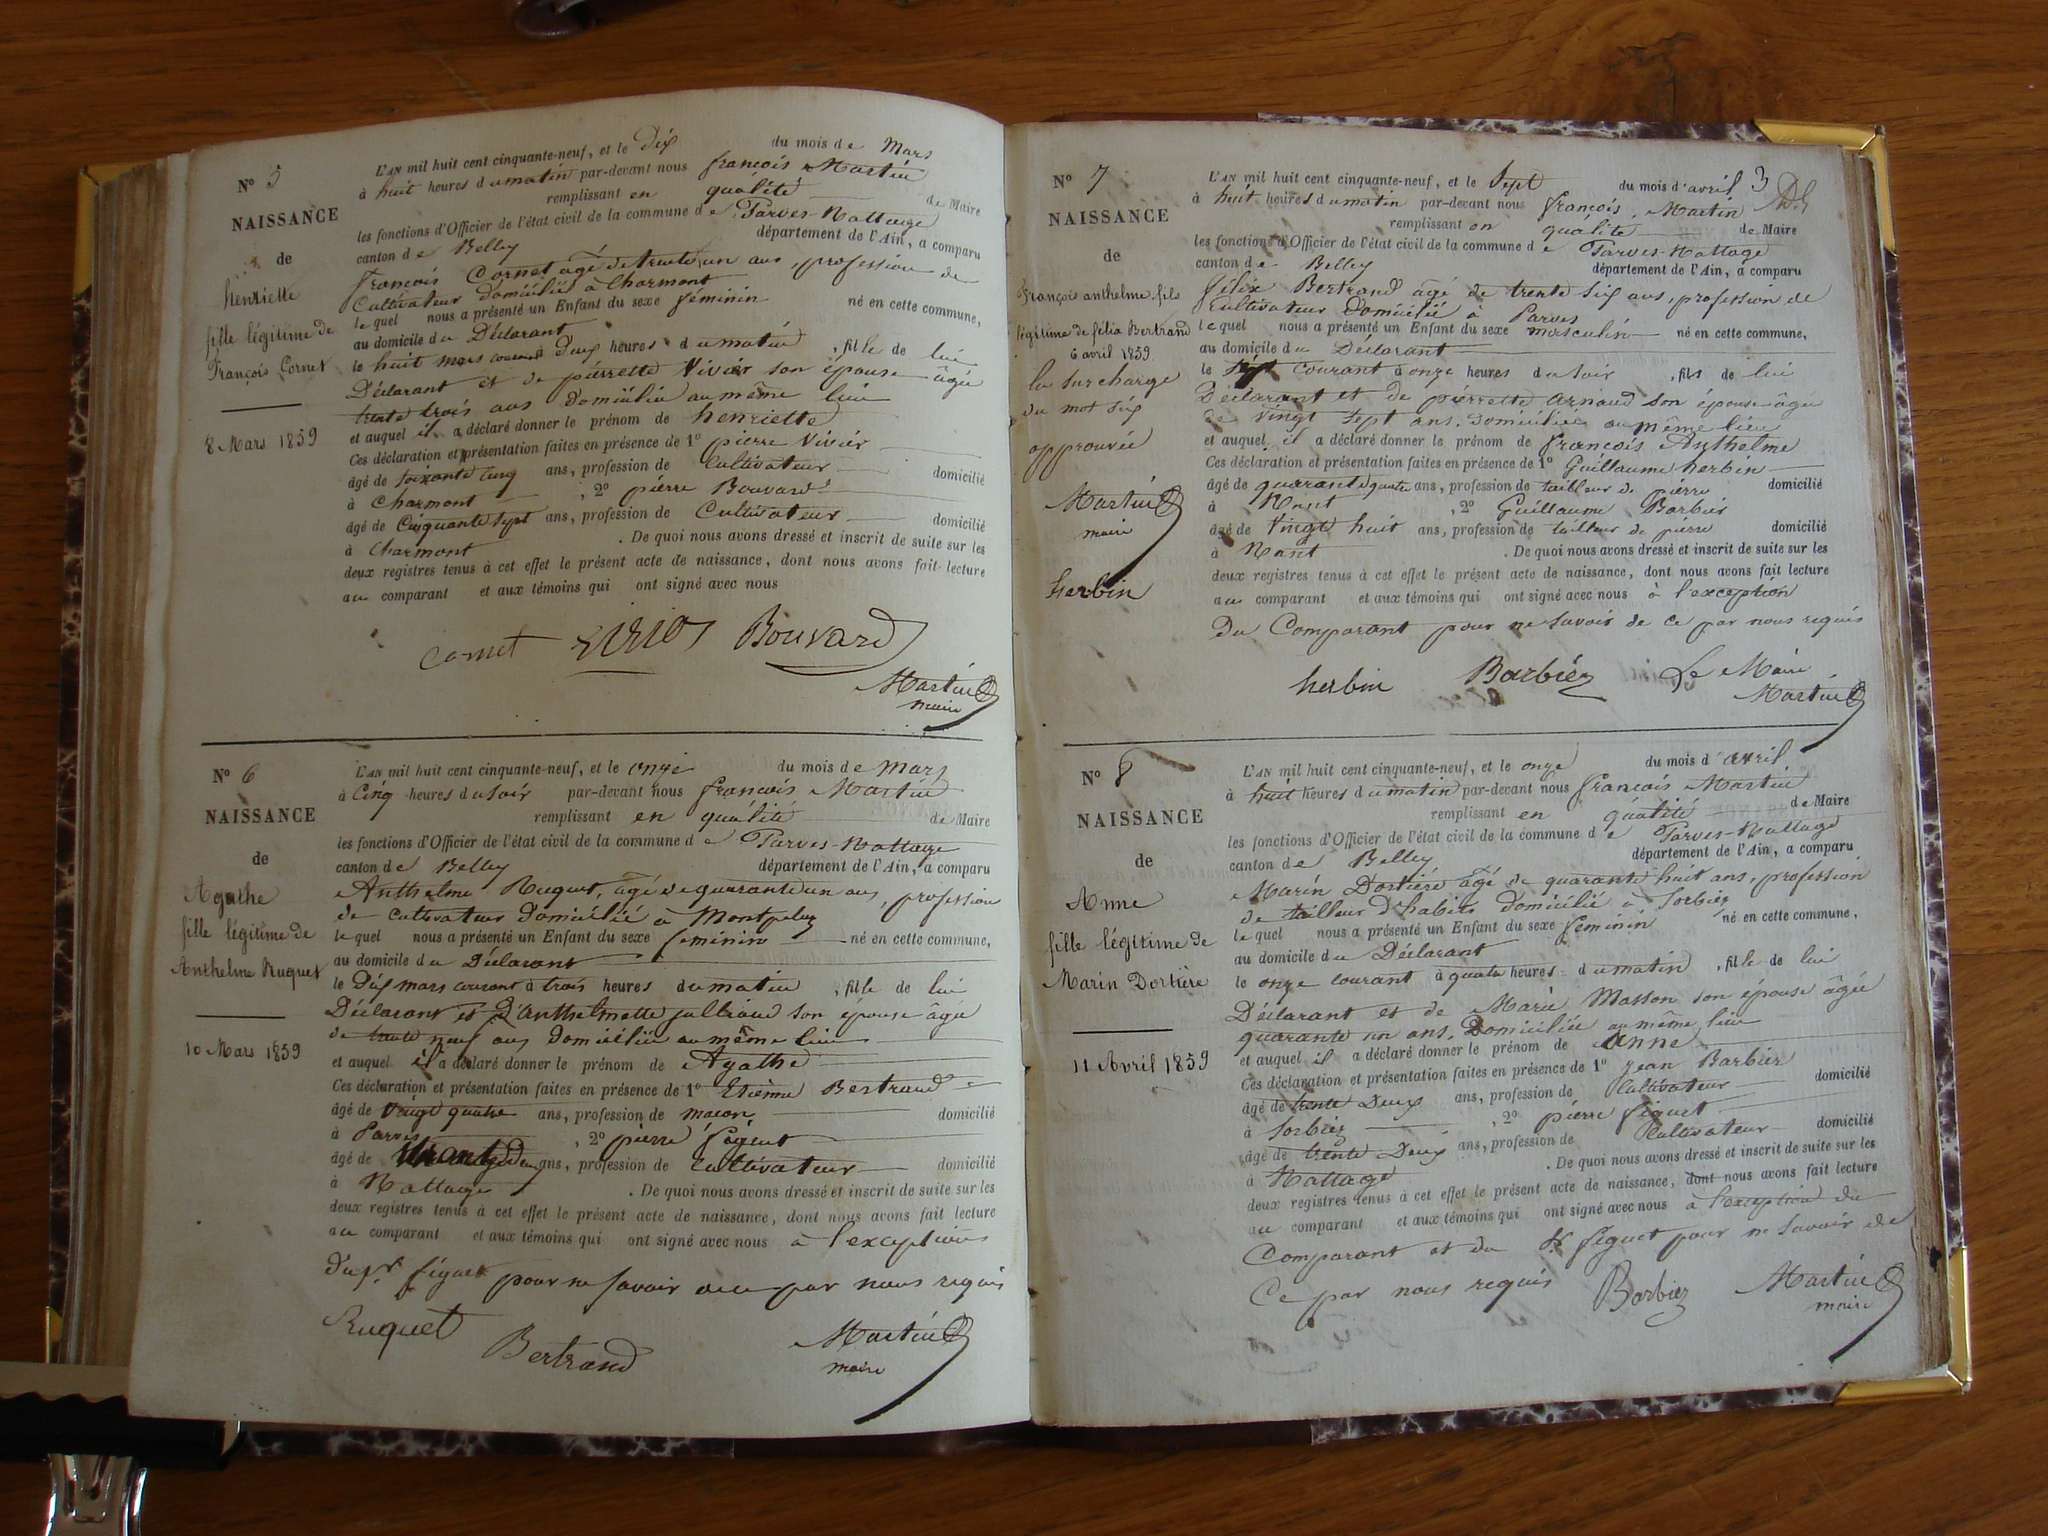 N° 5
NAISSANCE
de
henriette
fille légitime de
François Cornet
8 Mars 1859
L'AN mil huit cent cinquante-neuf, et le Dix du mois de Mars
à huit heures du matin par-devant nous françois Martin
remplissant en qualité de Maire
les fonctions d'Officier de l'état civil de la commune de Parves-Nattage
canton de Belley département de l'Ain, a comparu
françois Cornet âgé de trente un ans, profession de
Cultivateur domicilié à Charmont
lequel nous a présenté un Enfant du sexe féminin né en cette commune,
au domicile du Déclarant
le huit mars courant deux heures du matin, fille de lui
Déclarant et de pierrette Vivier son épouse âgée
trente trois ans domiciliée au même lieu
et auquel il a déclaré donner le prénom de henriette
Ces déclaration et présentation faites en présence de 1° pierre Vivier
âgé de soixante cinq ans, profession de Cultivateur domicilié
à Charmont, 2° pierre Bouvard
âgé de Cinquante sept ans, profession de Cultivateur domicilié
à Charmont. De quoi nous avons dressé et inscrit de suite sur les
deux registres tenus à cet effet le présent acte de naissance, dont nous avons fait lecture
au comparant et aux témoins qui ont signé avec nous
Cornet Bouvard
Martin
maire
N° 6
NAISSANCE
de
Agathe
fille légitime de
Anthelme Ruquet
10 Mars 1859
L'AN mil huit cent cinquante-neuf, et le onze du mois de mars
à Cinq heures du soir par-devant nous françois Martin
remplissant en qualité de Maire
les fonctions d'Officier de l'état civil de la commune de Parves-Nattage
canton de Belley département de l'Ain, a comparu
Anthelme Ruquet, âgé de quarante un ans, profession
de cultivateur domicilié à Montpeluz
lequel nous a présenté un Enfant du sexe féminin né en cette commune,
au domicile du Déclarant
le Dix mars courant à trois heures du matin, fille de lui
Déclarant et D'anthelmette jullioud son épouse âgée
de trente neuf ans domiciliée au même lieu
et auquel il a déclaré donner le prénom de Agathe
Ces déclaration et présentation faites en présence de 1° Etienne Bertrand
âgé de vingt quatre ans, profession de maçon domicilié
à Parves, 2° pierre figuet
âgé de ans, profession de Cultivateur domicilié
à Nattage. De quoi nous avons dressé et inscrit de suite sur les
deux registres tenus à cet effet le présent acte de naissance, dont nous avons fait lecture
au comparant et aux témoins qui ont signé avec nous à l'exception
du sr figuet pour ne savoir de ce par nous requis
Ruquet Bertrand Martin
maire
N° 7
NAISSANCE
de
François anthelme fils
légitime de félix Bertrand
6 avril 1859
la surcharge
du mot six
approuvée
Martin
maire
herbin
L'AN mil huit cent cinquante-neuf, et le Sept du mois d'avril 3
à huit heures du matin par-devant nous françois Martin
remplissant en qualité de Maire
les fonctions d'Officier de l'état civil de la commune de Parves-Nattage
canton de Belley département de l'Ain, a comparu
félix Bertrand âgé de trente six ans, profession de
Cultivateur domicilié à Parves
lequel nous a présenté un Enfant du sexe masculin né en cette commune,
au domicile du Déclarant
le courant à onze heures du soir, fils de lui
Déclarant et de pierrette arnaud son épouse âgée
de vingt sept ans, domiciliée au même lieu
et auquel il a déclaré donner le prénom de françois Anthelme
Ces déclaration et présentation faites en présence de 1° Guillaume herbin
âgé de quarante quatre ans, profession de tailleur de pierre domicilié
à Nant, 2° Guillaume Barbier
âgé de Vingt huit ans, profession de tailleur de pierre domicilié
à Nant. De quoi nous avons dressé et inscrit de suite sur les
deux registres tenus à cet effet le présent acte de naissance, dont nous avons fait lecture
au comparant et aux témoins qui ont signé avec nous à l'exception
Du Comparant pour ne savoir de ce par nous requis
herbin Barbier Le Maire
Martin
N° 8
NAISSANCE
de
Anne
fille légitime de
Marin Dortière
11 Avril 1859
L'AN mil huit cent cinquante-neuf, et le onze du mois d'avril
à huit heures du matin par-devant nous françois Martin
remplissant en qualité de Maire
les fonctions d'Officier de l'état civil de la commune de Parves-Nattage
canton de Belley département de l'Ain, a comparu
Marin Dortière âgé de quarante huit ans, profession
de tailleur d'habits domicilié à Sorbiez
lequel nous a présenté un Enfant du sexe féminin né en cette commune,
au domicile du Déclarant
le onze courant à quatre heures du matin, fille de lui
Déclarant et de Marie Masson son épouse âgée
quarante un ans, Domiciliée au même lieu
et auquel il a déclaré donner le prénom de Anne
Ces déclaration et présentation faites en présence de 1° Jean Barbier
âgé de trente Deux ans, profession de Cultivateur domicilié
à Sorbiez, 2° pierre figuet
âgé de trente Deux ans, profession de Cultivateur domicilié
à Nattage. De quoi nous avons dressé et inscrit de suite sur les
deux registres tenus à cet effet le présent acte de naissance, dont nous avons fait lecture
au comparant et aux témoins qui ont signé avec nous à l'exception du
Comparant et du sr figuet pour ne savoir de
Ce par nous requis Barbier Martin
maire